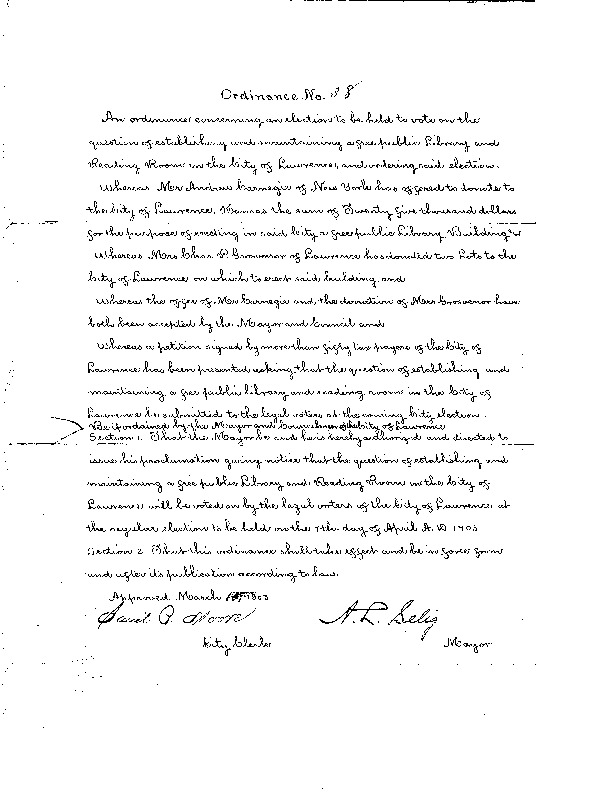 Ordinance No. 38
An ordinance concerning an election to be held to vote on the
question of establishing and maintaining a free public Library and
Reading Room in the City of Lawrence, and ordering said election.
Whereas Mr Andrew Carnegie of New York has offered to donate to
the City of Lawrence, Kansas the sum of Twenty five thousand dollars
for the purpose of erecting in said City a free public Library Building &
Whereas Mrs Chas P. Grosvenor of Lawrence has donated two Lots to the
City of Lawrence on which to erect said building and
Whereas the offer of Mr Carnegie and the donation of Mrs Grosvenor have
both been accepted by the Mayor and Council and
Whereas a petition signed by more than fifty tax payers of the City of
Lawrence has been presented asking that the question of establishing and
maintaining a free public library and reading room in the City of
Lawrence be submitted to the legal voters at the coming City election.
Be it ordained by the Mayor and Councilmen of the City of Lawrence
Section 1. That the Mayor be and he is hereby authorized and directed to
issue his proclamation giving notice that the question of establishing and
maintaining a free public Library and Reading Room in the City of
Lawrence will be voted on by the legal voters of the City of Lawrence at
the regular election to be held on the 7th day of April A.D. 1903
Section 2 That this ordinance shall take effect and be in force from
and after its publication according to law.
Approved March 1903
A. L. Selig
City Clerk Mayor